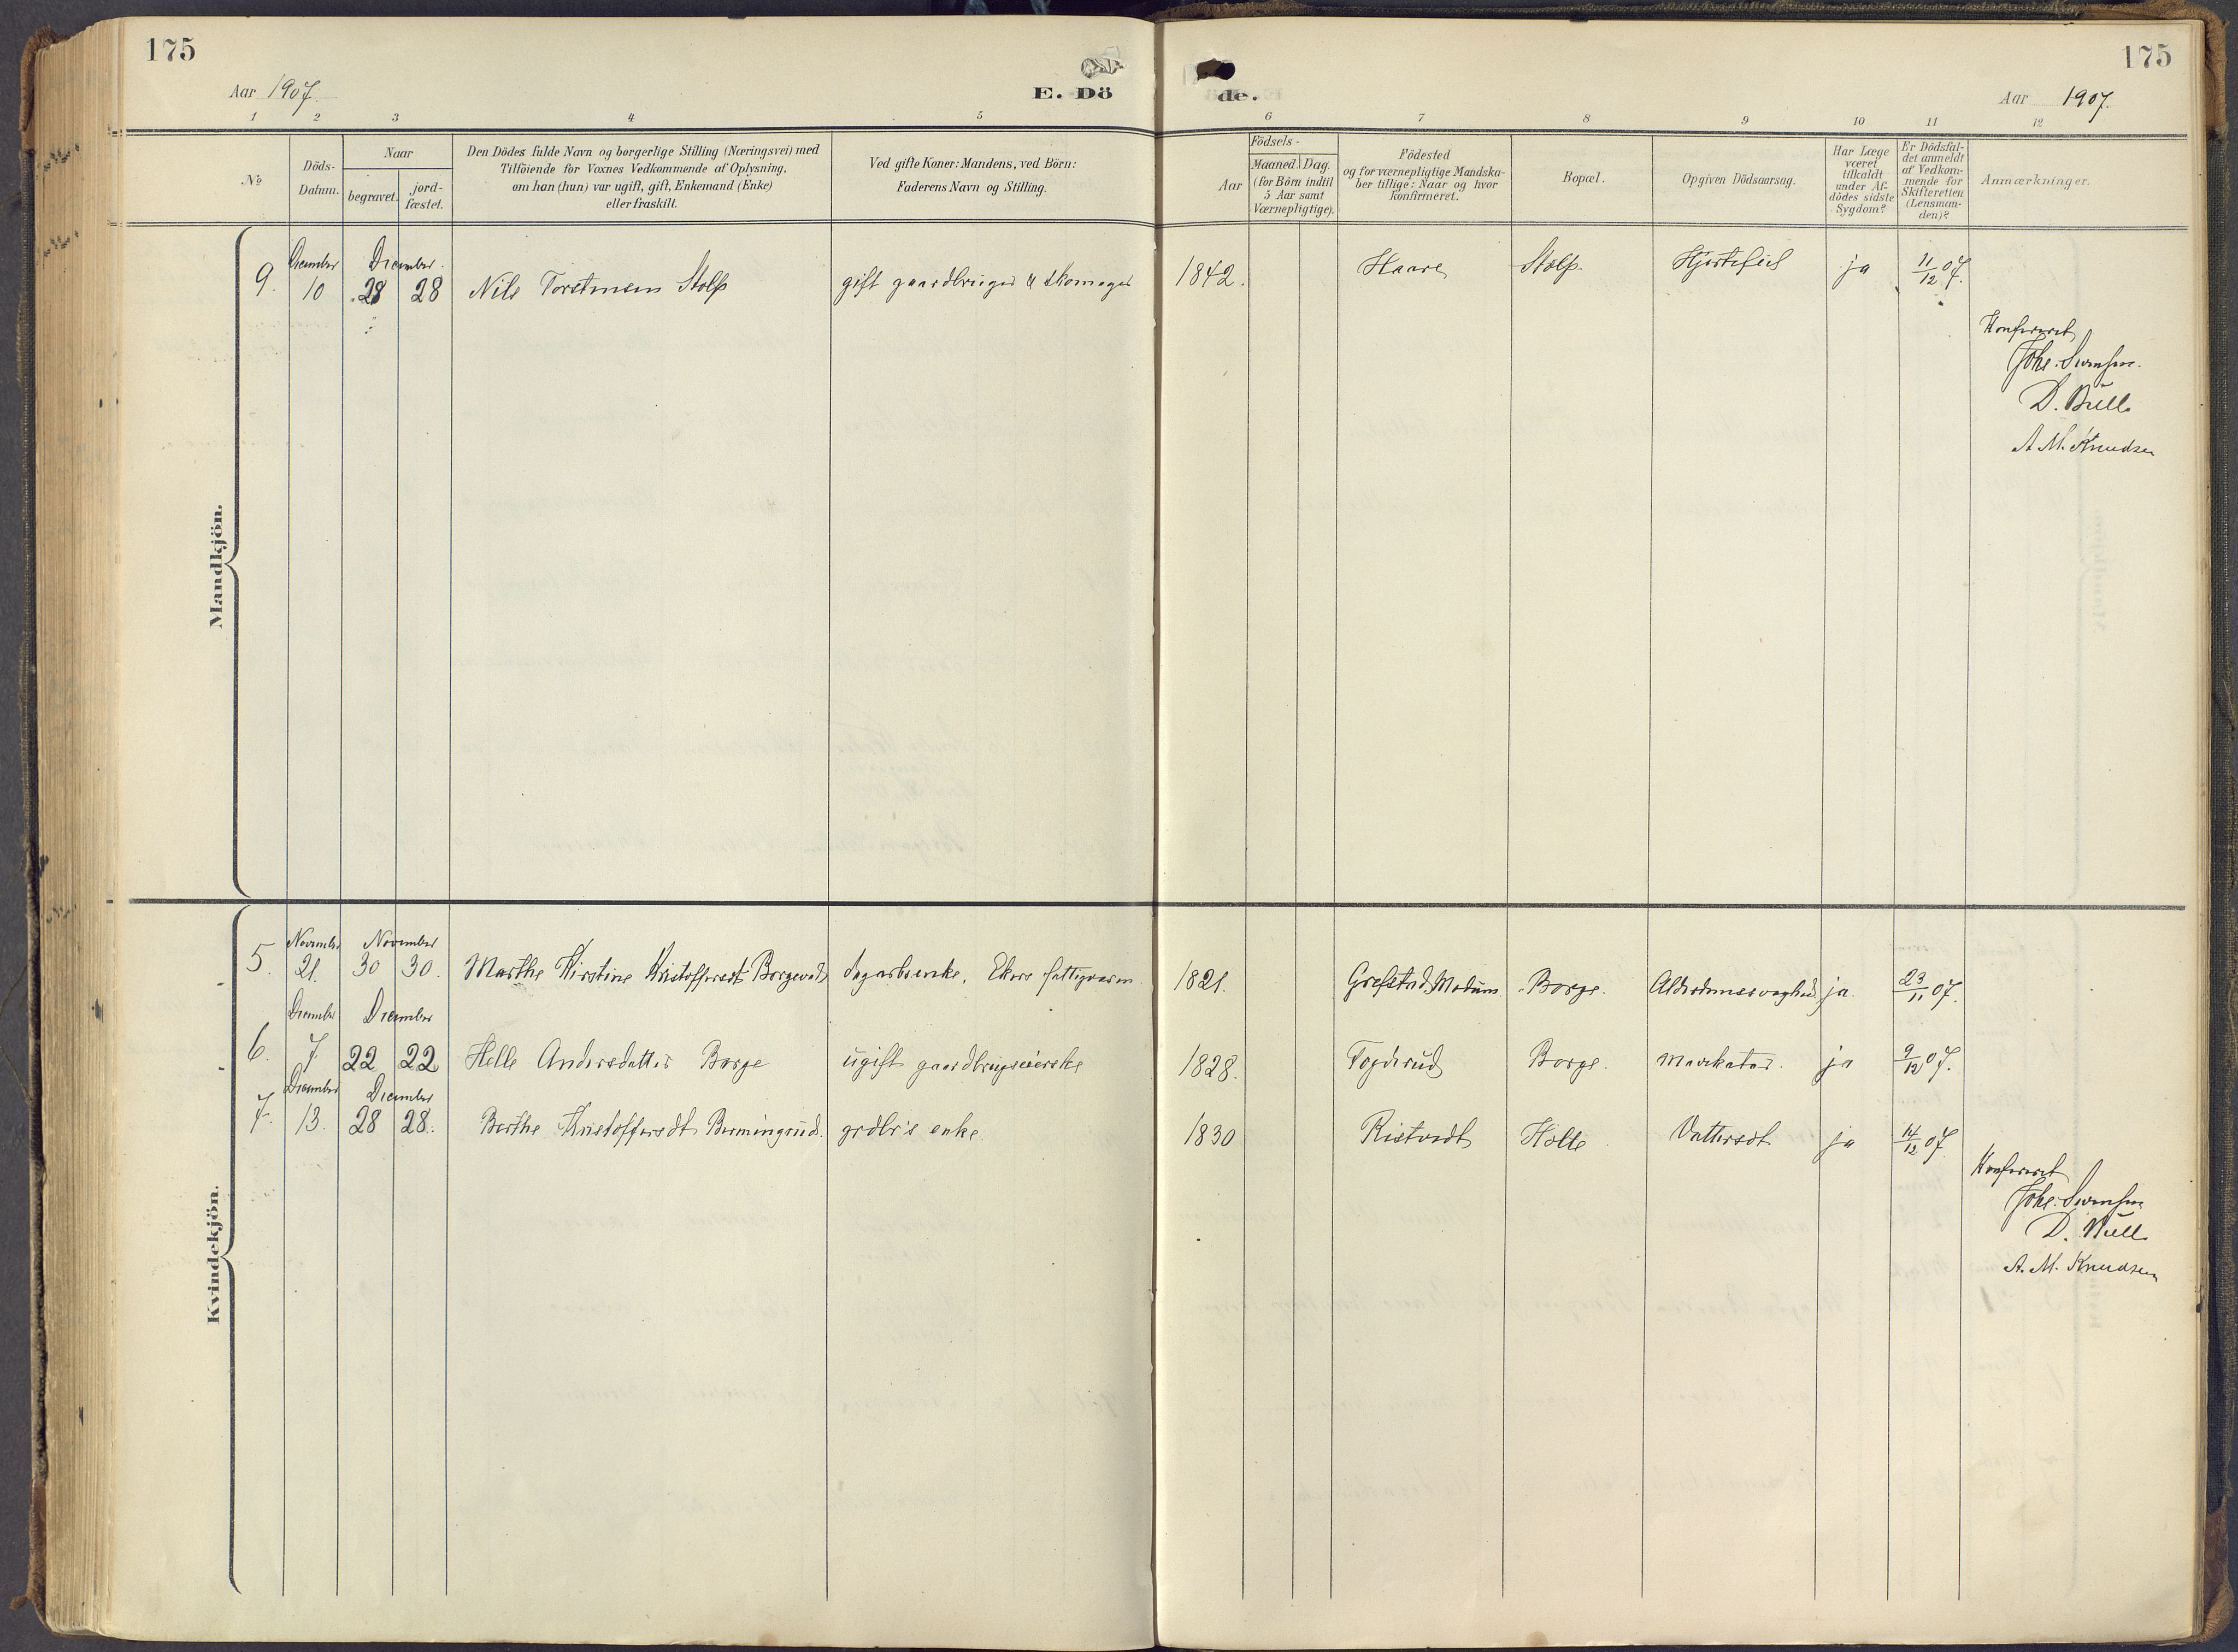 175
175
Aar 1907.
E. Dö
de.
Aar 1907.
1 2 3 4 5 6 7 8 9 10 11 12
No
Döds-
Datum.
Naar
begravet.
jord-
fæstet.
Den Dödes fulde Navn og borgerlige Stilling (Næringsvei) med
Tilföiende for Voxnes Vedkommende af Oplysning,
om han (hun) var ugift, gift, Enkemand (Enke)
eller fraskilt.
Ved gifte Koner: Mandens, ved Börn:
Faderens Navn og Stilling.
Aar
Födsels-
Maaned. Dag.
(for Börn indtil
5 Aar samt
Værnepligtige).
Födested
og for værnepligtige Mandska-
ber tillige: Naar og hvor
konfirmeret.
Bopæl.
Opgiven Dödsaarsag.
Har Læge
været
tilkaldt
under Af-
dödes sidste
Sygdom?
Er Dödsfal-
det anmeldt
af Vedkom-
mende for
Skifteretten
(Lensman-
den)?
Anmærkninger.
Mandkjön.
December December.
9. 10 28 28 Nils Torstensen Stolp gift gaardbruger & skomager 1842. Haare Stolp. Hjertefeil ja 11/12 07.
Konfereret
Johs. Svensen.
D. Bull
A. M. Knudsen
Kvindekjön.
November November
5. 21. 30 30. Marthe Kirstine Kristoffersdt Borgevad dagarbsenke, Ekers fattigvæsen. 1821. Grefstad, Modum. Borge. Alderdomssvaghed ja. 23/11 07.
December December
6. 7 22 22 Helle Andersdatter Borge ugift gaardbrugseierske 1828. Togderud Borge. Mavekatar. ja 9/12 07.
December December
7. 13. 28 28. Berthe Kristoffersdt Bermingrud. grdbr's enke. 1830 Ristvedt Holte Vattersot ja 14/12 07.
Konfereret
Johs. Svensen
D. Bull
A. M. Knudsen